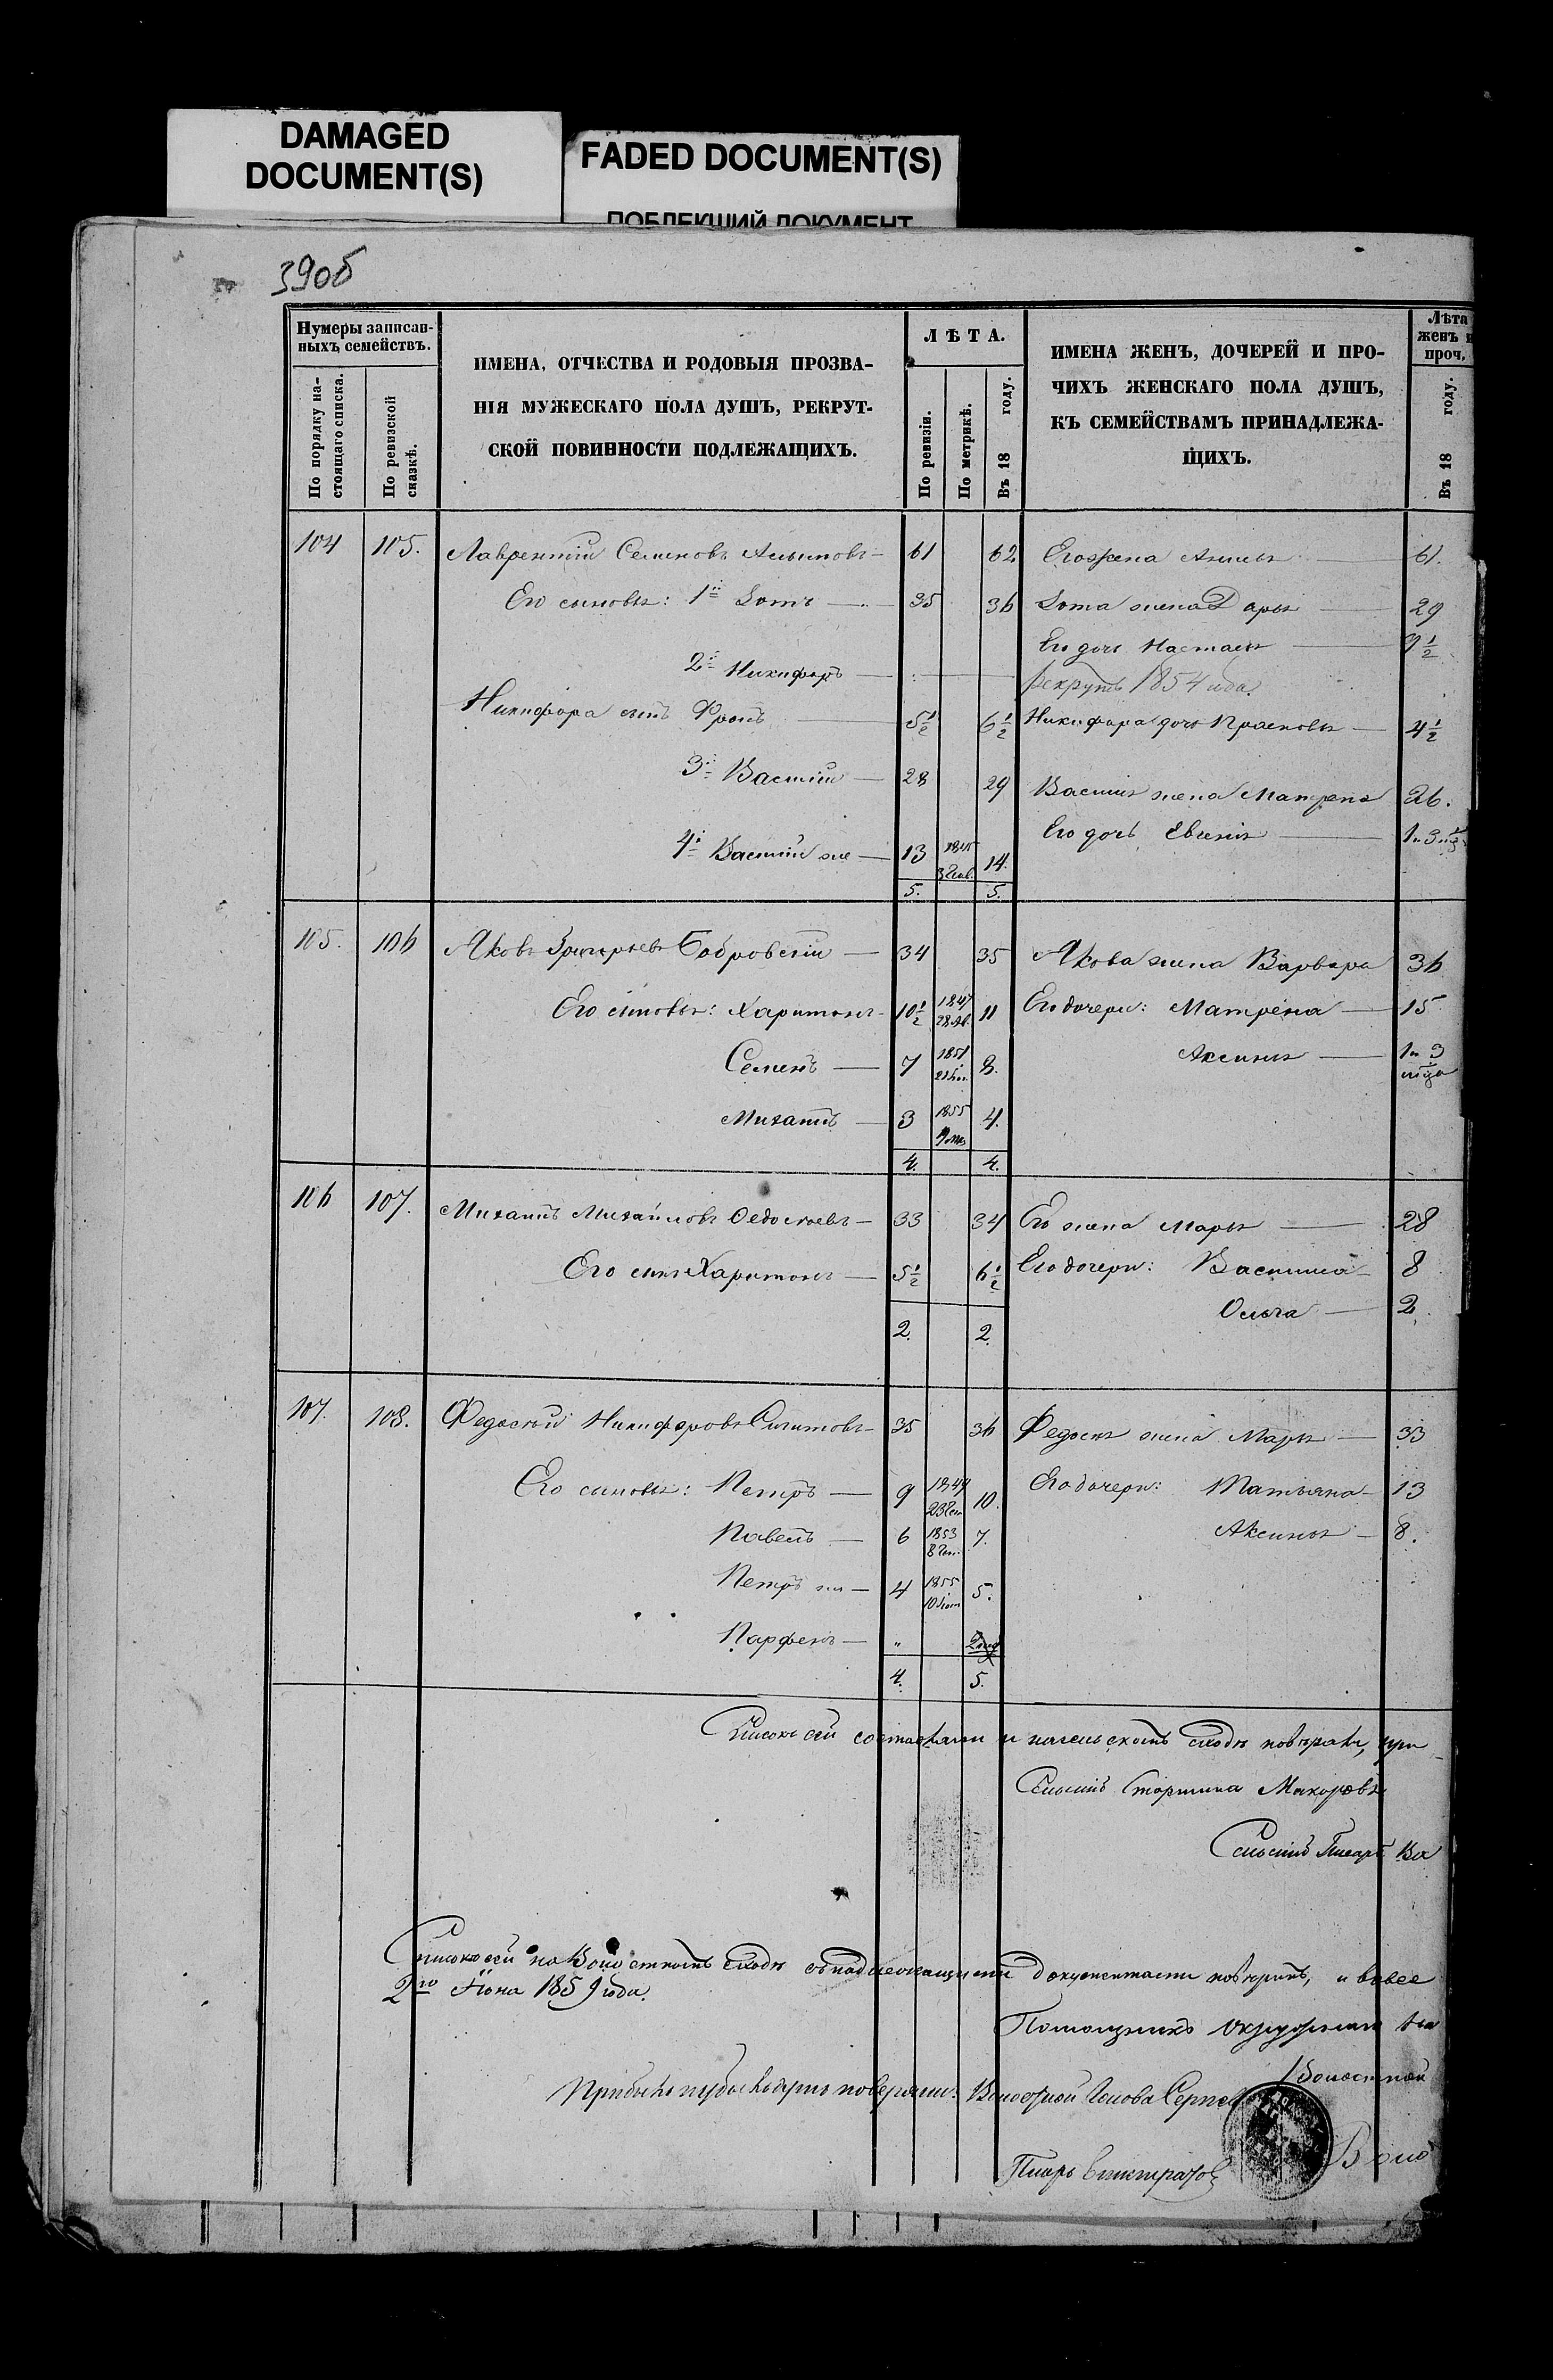 DAMAGED
DOCUMENT(S)
FADED DOCUMENT(S)
ПОБЛЕКШИЙ ДОКУМЕНТ
390б
Нумеры записан-
ныхъ семействъ.
По порядку на-
стоящаго списка.
По ревизской
сказкѣ.
ИМЕНА, ОТЧЕСТВА И РОДОВЫЯ ПРОЗВА-
НІЯ МУЖЕСКАГО ПОЛА ДУШЪ, РЕКРУТ-
СКОЙ ПОВИННОСТИ ПОДЛЕЖАЩИХЪ.
ЛѢТА.
По ревизіи.
По метрикѣ.
Въ 18 году.
ИМЕНА ЖЕНЪ, ДОЧЕРЕЙ И ПРО-
ЧИХЪ ЖЕНСКАГО ПОЛА ДУШЪ,
КЪ СЕМЕЙСТВАМЪ ПРИНАДЛЕЖА-
ЩИХЪ.
Лѣта
женъ и
проч.
Въ 18 году.
104 105. Лаврентій Семеновъ 61 62 Его жена 61.
Его сыновья: 1й Лотъ 35 36 Лота жена Дарья 29
Его дочь Настасья 9½
2й Никифоръ рекрутъ 1854 года
Никифора сынъ Фролъ 5½ 6½ Никифора дочь Прасковья 4½
3й Василій 28 29 Василья жена Матрена 26.
Его дочь Евгенія
4й Василій же 13 14.
5. 5.
105. 106 Яковъ Григорьевъ Бобровскій 34 35 Якова жена Варвара 36
Его сыновья: Харитонъ 10½ 1847 11 Его дочери: Матрена 15
Семенъ 7 1851 8. Аксинья 1 и 3
мѣс
Михаилъ 3 1855 4.
4. 4.
106 107. Михаилъ Михайловъ Федосѣевъ 33 34 Его жена Марья 28
Его сынъ Харитонъ 5½ 6½ Его дочери: Василиса 8
Ольга 2
2. 2
107. 108. Федосѣй Никифоровъ 35 36 Федосѣя жена Марья 33
Его сыновья: Петръ 9 1849 10. Его дочери: Татьяна 13
Павелъ 6 1853 7. Аксинья 8.
Петръ же 4 1855 5.
Парфенъ "
4. 5.
Списокъ сей составляли и на сельскомъ сходѣ повѣряли, при
Сельскій Старшина Макаровъ
Сельскій Писарь Ва
Списокъ сей на Волостномъ сходѣ съ надлежащими документами повѣренъ, и вовсе
2го Іюня 1859 года.
Помощникъ Окружнаго
Волостной
Волостной Голова
Писарь
Воло